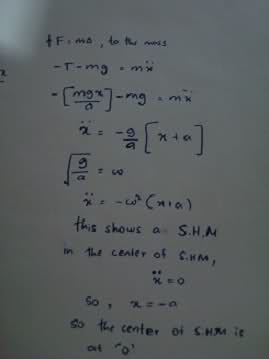 ↑F = ma, to the mass
-T - mg = mẍ
x
-[mgx/a] - mg = mẍ
ẍ = -g/a [x+a]
√(g/a) = ω
ẍ = -ω² (x+a)
this shows a S.H.M
in the center of S.H.M,
ẍ = 0
so, x = -a
so the center of S.H.M is
at "O"